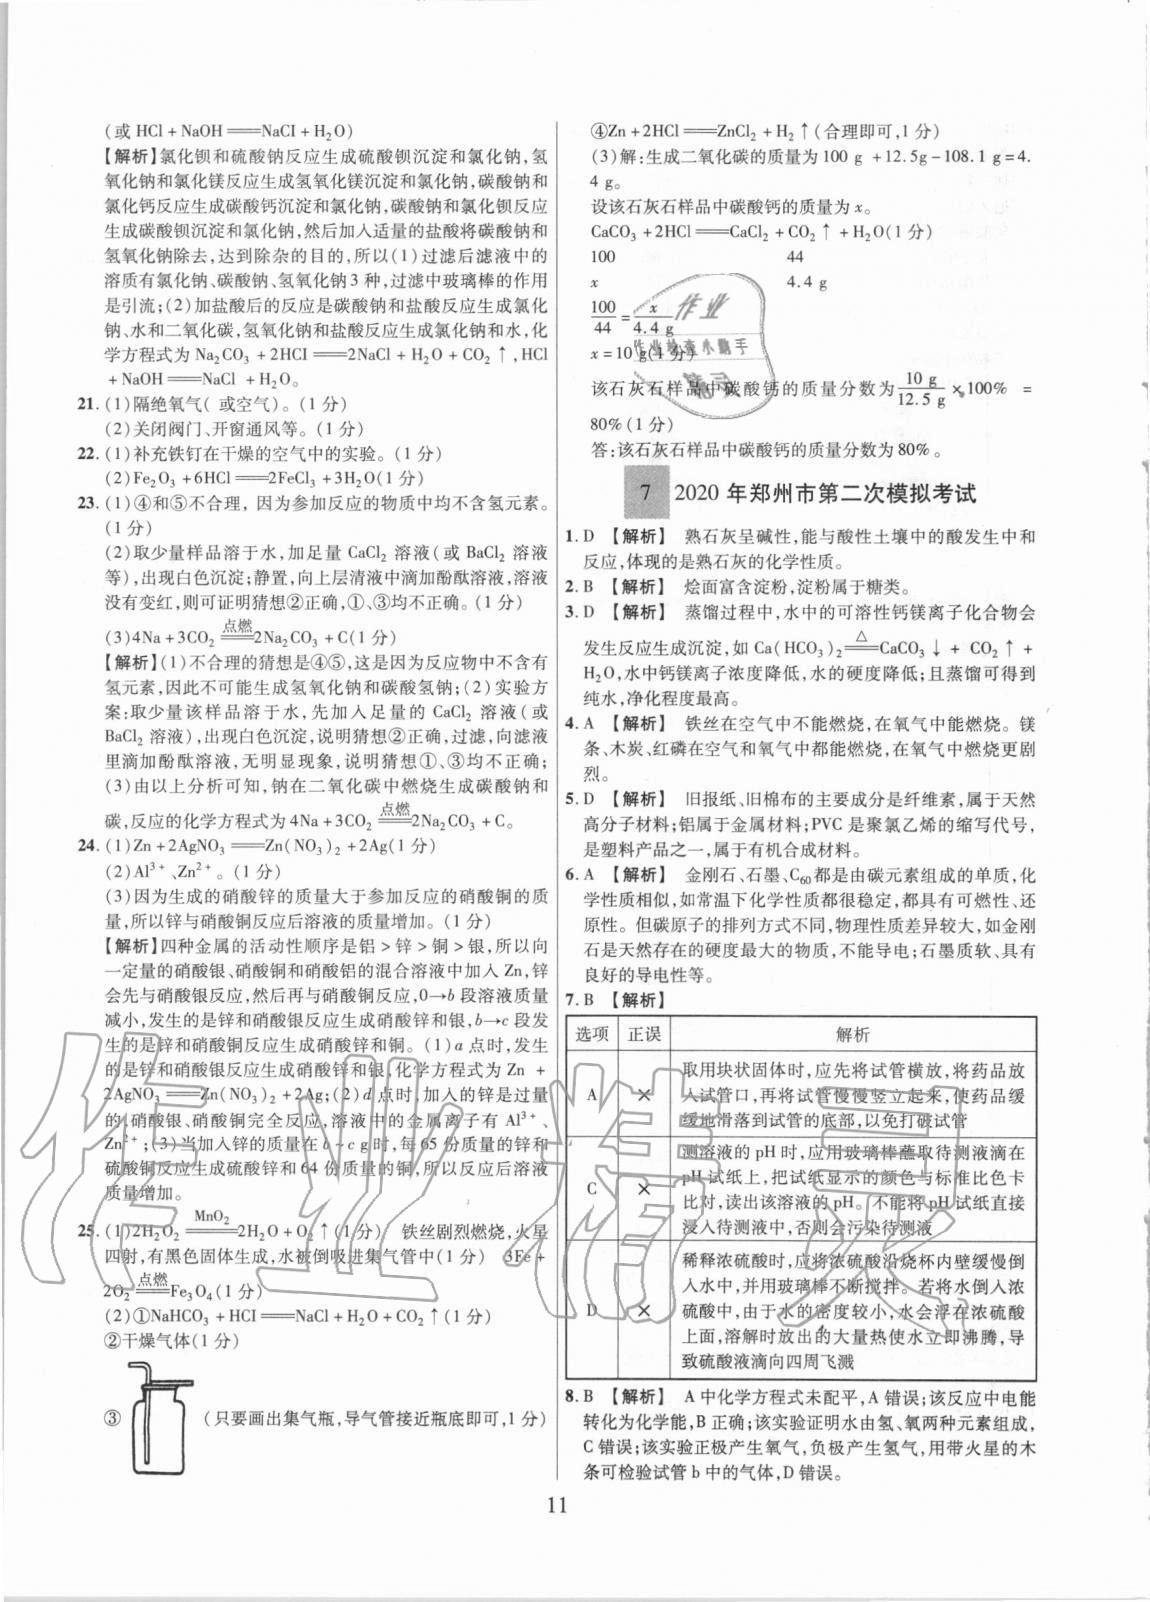 (或 HCl + NaOH══NaCl + H₂O)
【解析】氯化钡和硫酸钠反应生成硫酸钡沉淀和氯化钠,氢
氧化钠和氯化镁反应生成氢氧化镁沉淀和氯化钠,碳酸钠和
氯化钙反应生成碳酸钙沉淀和氯化钠,碳酸钠和氯化钡反应
生成碳酸钡沉淀和氯化钠,然后加入适量的盐酸将碳酸钠和
氢氧化钠除去,达到除杂的目的,所以(1)过滤后滤液中的
溶质有氯化钠、碳酸钠、氢氧化钠3 种,过滤中玻璃棒的作用
是引流;(2)加盐酸后的反应是碳酸钠和盐酸反应生成氯化
钠、水和二氧化碳,氢氧化钠和盐酸反应生成氯化钠和水,化
学方程式为 Na₂CO₃ + 2HCl══2NaCl + H₂O + CO₂↑,HCl
+ NaOH══NaCl + H₂O。
21. (1)隔绝氧气( 或空气)。(1 分)
(2)关闭阀门、开窗通风等。(1 分)
22. (1)补充铁钉在干燥的空气中的实验。(1 分)
(2)Fe₂O₃ +6HCl══2FeCl₃ +3H₂O(1 分)
23. (1)④和⑤不合理, 因为参加反应的物质中均不含氢元素。
(1 分)
(2)取少量样品溶于水,加足量 CaCl₂ 溶液(或 BaCl₂ 溶液
等),出现白色沉淀;静置,向上层清液中滴加酚酞溶液,溶液
没有变红,则可证明猜想②正确,①、③均不正确。(1 分)
(3)4Na +3CO₂ ══点燃══ 2Na₂CO₃ + C(1 分)
【解析】(1)不合理的猜想是④⑤,这是因为反应物中不含有
氢元素,因此不可能生成氢氧化钠和碳酸氢钠;(2)实验方
案:取少量该样品溶于水,先加入足量的 CaCl₂ 溶液(或
BaCl₂ 溶液),出现白色沉淀,说明猜想②正确,过滤,向滤液
里滴加酚酞溶液,无明显现象,说明猜想①、③均不正确;
(3)由以上分析可知,钠在二氧化碳中燃烧生成碳酸钠和
碳,反应的化学方程式为 4Na +3CO₂ ══点燃══ 2Na₂CO₃ + C。
24. (1)Zn + 2AgNO₃══Zn(NO₃)₂ +2Ag(1 分)
(2)Al³⁺、Zn²⁺。(1 分)
(3)因为生成的硝酸锌的质量大于参加反应的硝酸铜的质
量,所以锌与硝酸铜反应后溶液的质量增加。(1 分)
【解析】四种金属的活动性顺序是铝 > 锌 > 铜 > 银,所以向
一定量的硝酸银、硝酸铜和硝酸铝的混合溶液中加入 Zn,锌
会先与硝酸银反应,然后再与硝酸铜反应,0→b 段溶液质量
减小,发生的是锌和硝酸银反应生成硝酸锌和银,b→c 段发
生的是锌和硝酸铜反应生成硝酸锌和铜。(1)a 点时,发生
的是锌和硝酸银反应生成硝酸锌和银,化学方程式为 Zn +
2AgNO₃══Zn(NO₃)₂ +2Ag;(2)d 点时,加入的锌是过量
的,硝酸银、硝酸铜完全反应,溶液中的金属离子有 Al³⁺、
Zn²⁺;(3)当加入锌的质量在 b ~ c g时,每 65 份质量的锌和
硫酸铜反应生成硫酸锌和 64 份质量的铜,所以反应后溶液
质量增加。
25. (1)2H₂O₂ ══MnO₂══ 2H₂O + O₂↑(1 分) 铁丝剧烈燃烧,火星
四射,有黑色固体生成,水被倒吸进集气瓶中(1 分) 3Fe +
2O₂ ══点燃══ Fe₃O₄(1 分)
(2)①NaHCO₃ + HCl══NaCl + H₂O + CO₂↑(1 分)
②干燥气体(1 分)
③ (只要画出集气瓶,导气管接近瓶底即可,1 分)
④Zn +2HCl══ZnCl₂ + H₂↑(合理即可,1 分)
(3)解:生成二氧化碳的质量为 100 g +12.5g-108.1 g=4.
4 g。
设该石灰石样品中碳酸钙的质量为 x。
CaCO₃ +2HCl══CaCl₂ + CO₂↑ + H₂O(1 分)
100 44
x 4.4 g
100/44 = x/4.4 g
x = 10 g(1 分)
该石灰石样品中碳酸钙的质量分数为 10 g/12.5 g × 100% =
80%(1 分)
答:该石灰石样品中碳酸钙的质量分数为 80%。
7 2020 年郑州市第二次模拟考试
1. D 【解析】 熟石灰呈碱性,能与酸性土壤中的酸发生中和
反应,体现的是熟石灰的化学性质。
2. B 【解析】 烩面富含淀粉,淀粉属于糖类。
3. D 【解析】 蒸馏过程中,水中的可溶性钙镁离子化合物会
发生反应生成沉淀,如 Ca(HCO₃)₂ ══△══ CaCO₃↓ + CO₂↑ +
H₂O,水中钙镁离子浓度降低,水的硬度降低;且蒸馏可得到
纯水,净化程度最高。
4. A 【解析】 铁丝在空气中不能燃烧,在氧气中能燃烧。镁
条、木炭、红磷在空气和氧气中都能燃烧,在氧气中燃烧更剧
烈。
5. D 【解析】 旧报纸、旧棉布的主要成分是纤维素,属于天然
高分子材料;铝属于金属材料;PVC 是聚氯乙烯的缩写代号,
是塑料产品之一,属于有机合成材料。
6. A 【解析】 金刚石、石墨、C₆₀都是由碳元素组成的单质,化
学性质相似,如常温下化学性质都很稳定,都具有可燃性、还
原性。但碳原子的排列方式不同,物理性质差异较大,如金刚
石是天然存在的硬度最大的物质,不能导电;石墨质软、具有
良好的导电性等。
7. B 【解析】
选项 正误 解析
A × 取用块状固体时,应先将试管横放,将药品放
入试管口,再将试管慢慢竖立起来,使药品缓
缓地滑落到试管的底部,以免打破试管
C × 测溶液的 pH 时,应用玻璃棒蘸取待测液滴在
pH 试纸上,把试纸显示的颜色与标准比色卡
比对,读出该溶液的 pH。不能将 pH 试纸直接
浸入待测液中,否则会污染待测液
D × 稀释浓硫酸时,应将浓硫酸沿烧杯内壁缓慢倒
入水中,并用玻璃棒不断搅拌。若将水倒入浓
硫酸中,由于水的密度较小,水会浮在浓硫酸
上面,溶解时放出的大量热使水立即沸腾,导
致硫酸液滴向四周飞溅
8. B 【解析】 A 中化学方程式未配平,A 错误;该反应中电能
转化为化学能,B 正确;该实验证明水由氢、氧两种元素组成,
C 错误;该实验正极产生氧气,负极产生氢气,用带火星的木
条可检验试管 b 中的气体,D 错误。
11
作业
作业检查小助手
作业精灵